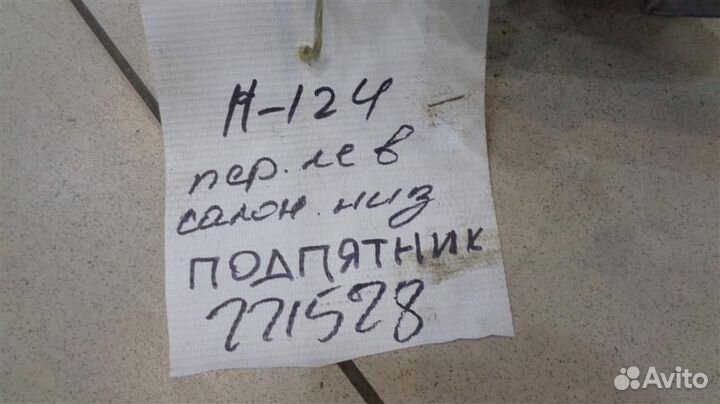 Н-124
пер. лев
салон. низ
ПОДПЯТНИК
221528
Avito